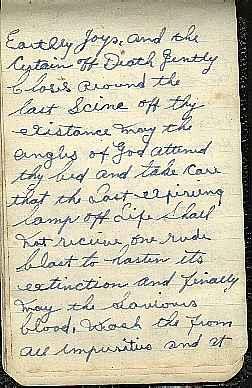 Earthly Joys, and the
Cytain off Death Gently
Closes around the
last Scine off thy
existance may the
angles of God attend
thy bed and take Care
that the Last expiring
lamp off Life Shall
not recieve, one rude
blast to hasten its
extinction and finally
may the Saviours
blood, Wash the from
all impurities and at